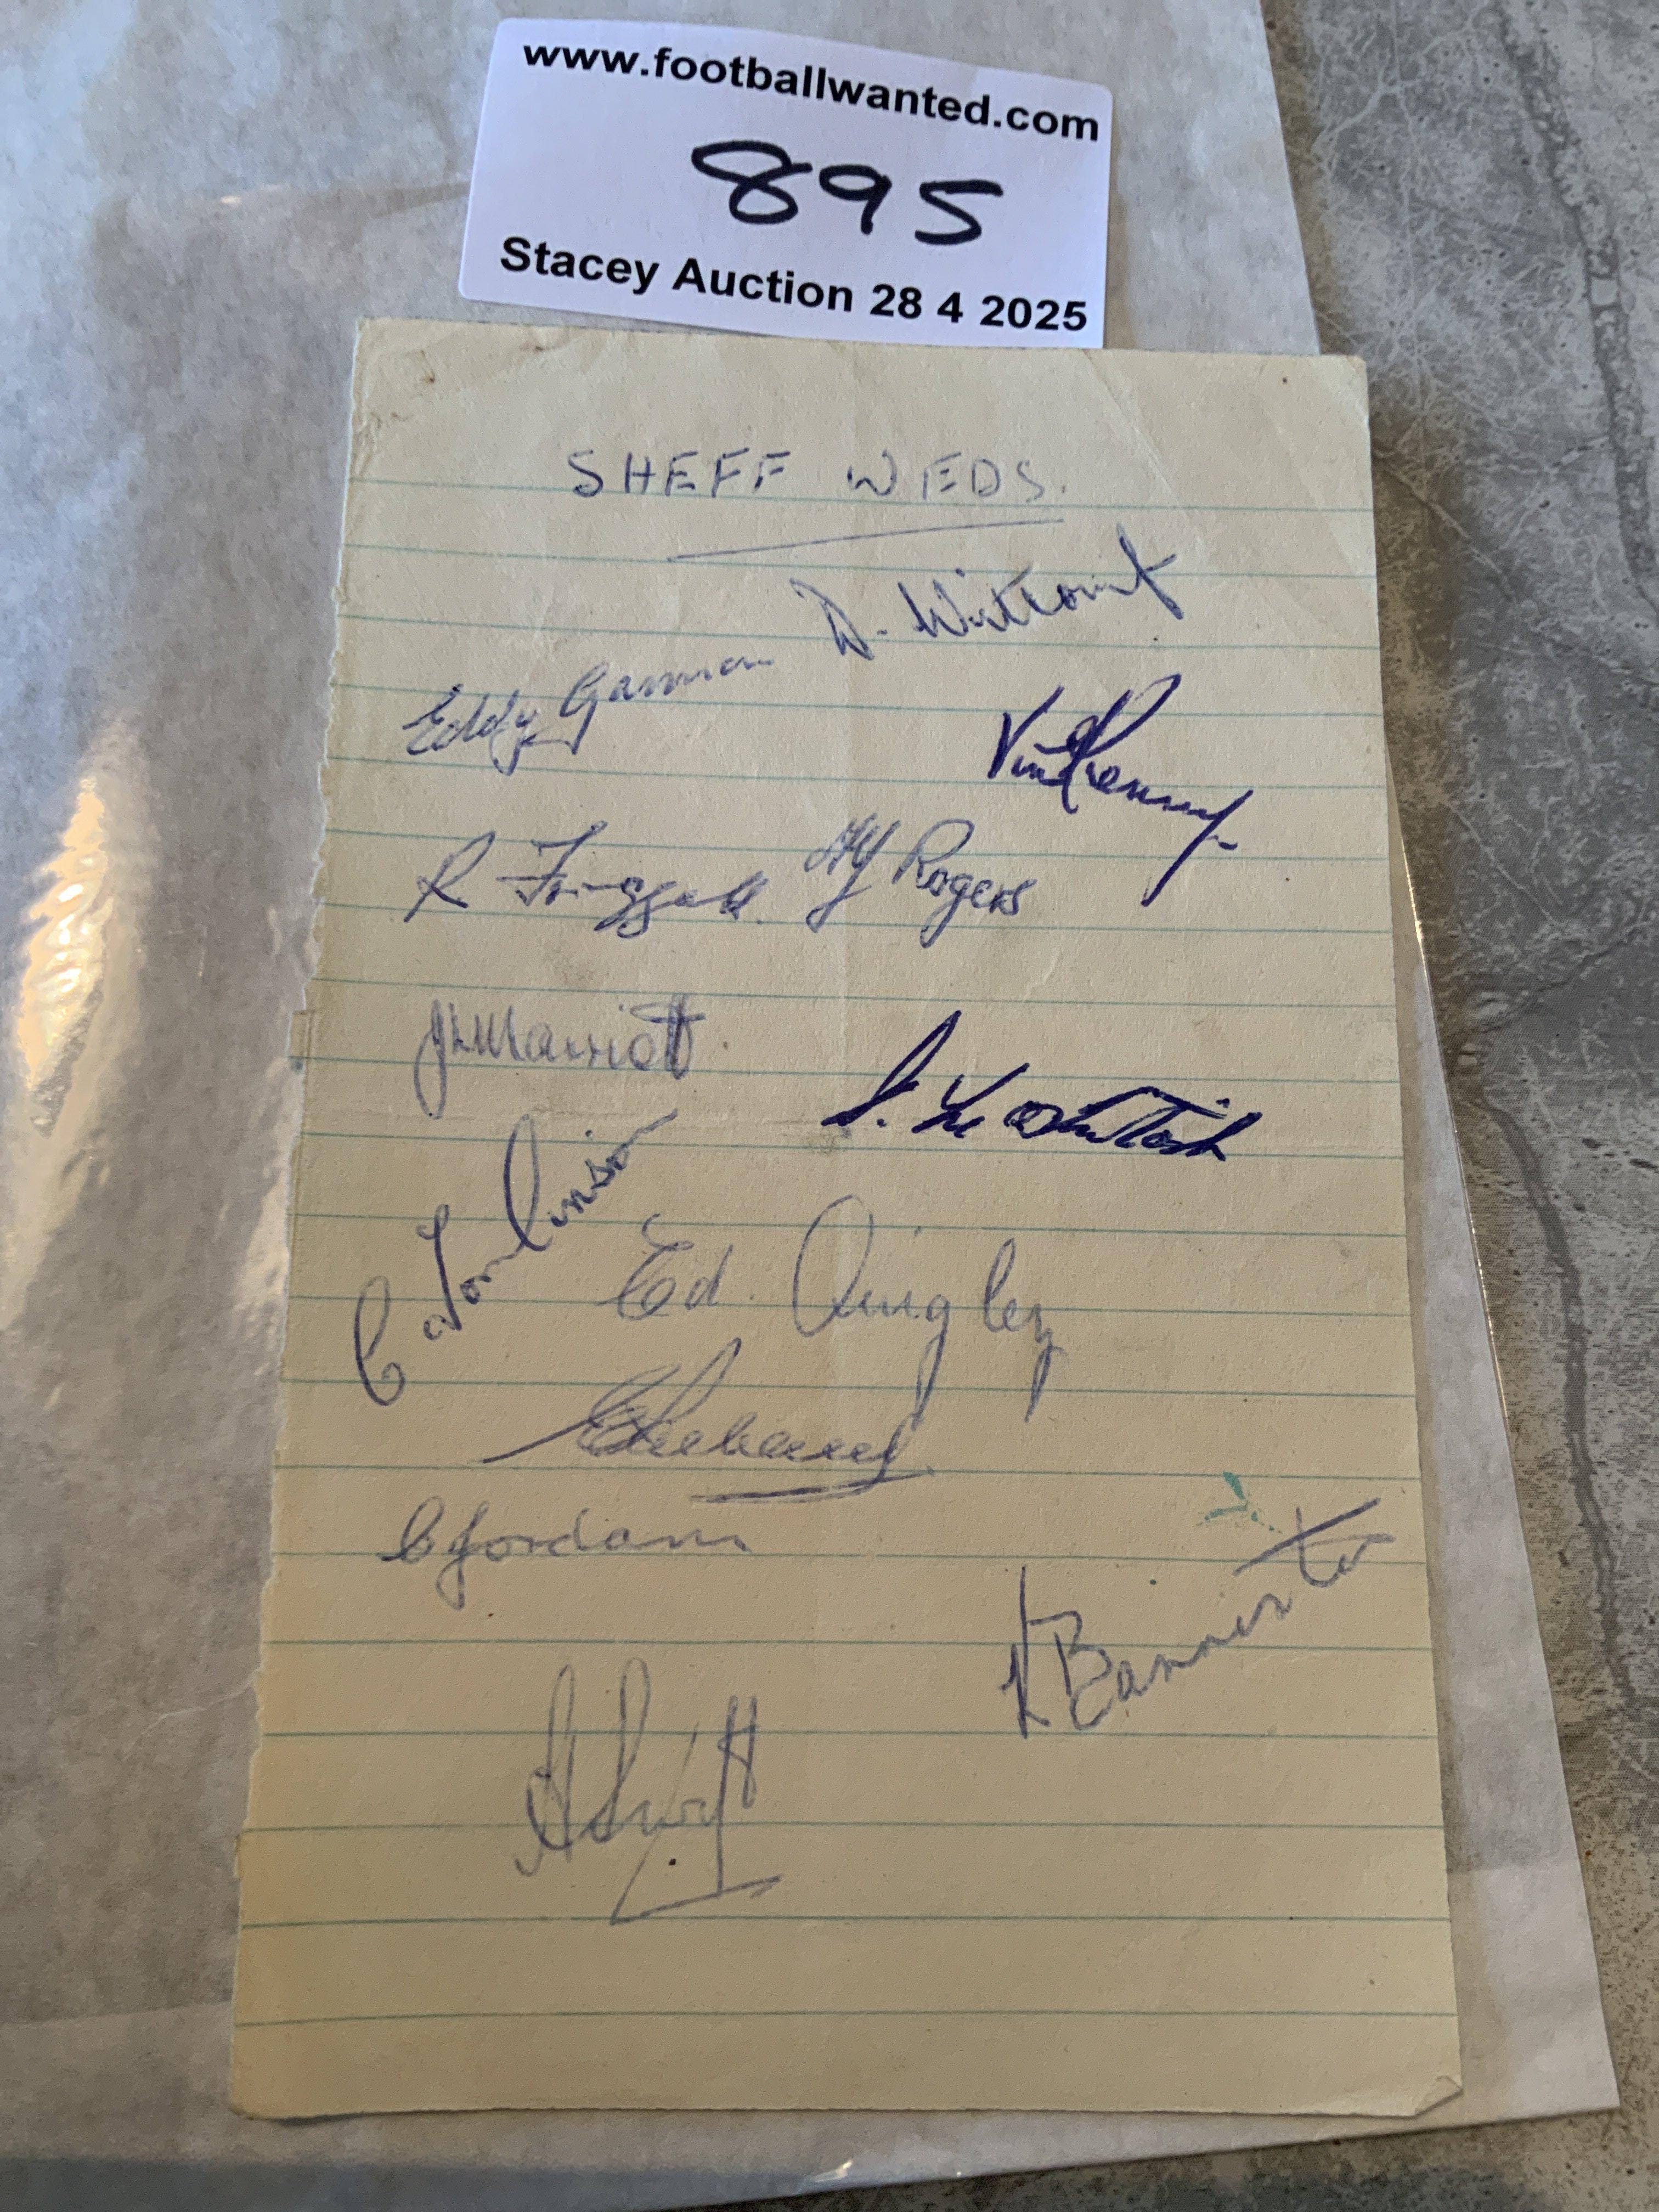 www.footballwanted.com
895
Stacey Auction 28 4 2025
SHEFF WEDS.
D. Witcomb
Eddy Gannon
Vin Kenny
R Froggatt. AY Rogers
JL Marriott
D. McIntosh
C. Tomlinson
Ed. Quigley
C Jordan
K Bannister